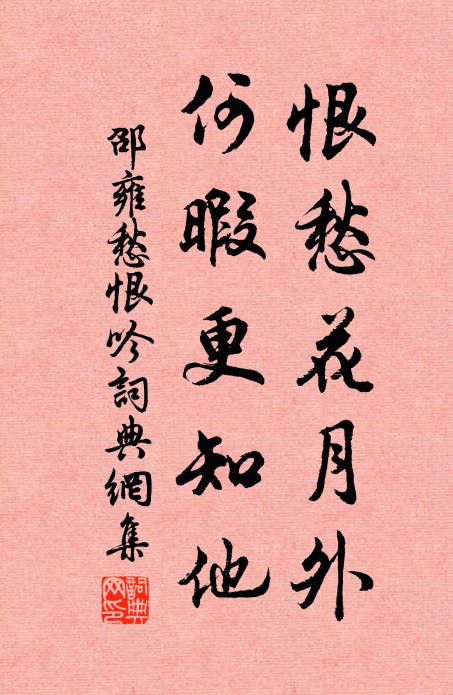 恨愁花月外
何暇更知他
邵雍愁恨吟詞典網集
詞典
网印